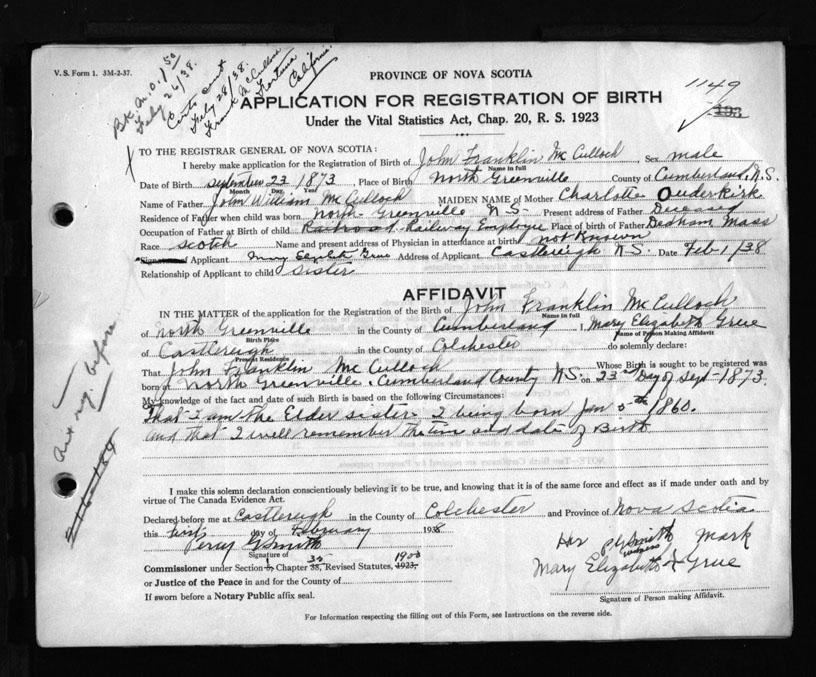 V. S. Form 1. 3M-2-37.
B.K. M.O. 1.50
July 26/38.
Certs sent
July 28/38.
Frank McCulloch
Fortuna
California
PROVINCE OF NOVA SCOTIA
1149
APPLICATION FOR REGISTRATION OF BIRTH
193
Under the Vital Statistics Act, Chap. 20, R. S. 1923
TO THE REGISTRAR GENERAL OF NOVA SCOTIA:
I hereby make application for the Registration of Birth of John Franklin McCulloch Sex male
Name in full
Date of Birth September 23 1873 Place of Birth North Greenville County of Cumberland, N.S.
Month Day Year
Name of Father John William McCulloch MAIDEN NAME of Mother Charlotte Ouderkirk
Residence of Father when child was born North Greenville N.S. Present address of Father Deceased
Occupation of Father at Birth of child Railroad Railway Employee Place of birth of Father Dedham Mass
Race Scotch Name and present address of Physician in attendance at birth not Known
Signature of Applicant Mary Elizabeth Grue Address of Applicant Castlereigh N.S. Date Feb 1/38
Relationship of Applicant to child Sister
AFFIDAVIT
IN THE MATTER of the application for the Registration of the Birth of John Franklin McCulloch
Name in full
of North Greenville in the County of Cumberland I, Mary Elizabeth Grue
Birth Place Name of Person Making Affidavit
of Castlereigh in the County of Colchester do solemnly declare:
Present Residence
That John Franklin McCulloch Whose Birth is sought to be registered was
born at North Greenville, Cumberland County N.S. on 23rd Day of Sept-1873.
My knowledge of the fact and date of such Birth is based on the following Circumstances:
That I am the Elder sister I being born Jan 5th 1860.
and that I well remember the time and date of Birth
Ant reg. before
I make this solemn declaration conscientiously believing it to be true, and knowing that it is of the same force and effect as if made under oath and by
virtue of The Canada Evidence Act.
Declared before me at Castlereigh in the County of Colchester and Province of Nova Scotia
this first day of February 1938
Percy G Smith
Signature of
Her PGSmith Mark
witness
Mary Elizabeth X Grue
1900
Commissioner under Section 1, Chapter 38, Revised Statutes, 1923.
or Justice of the Peace in and for the County of
If sworn before a Notary Public affix seal.
Signature of Person making Affidavit.
For Information respecting the filling out of this Form, see Instructions on the reverse side.